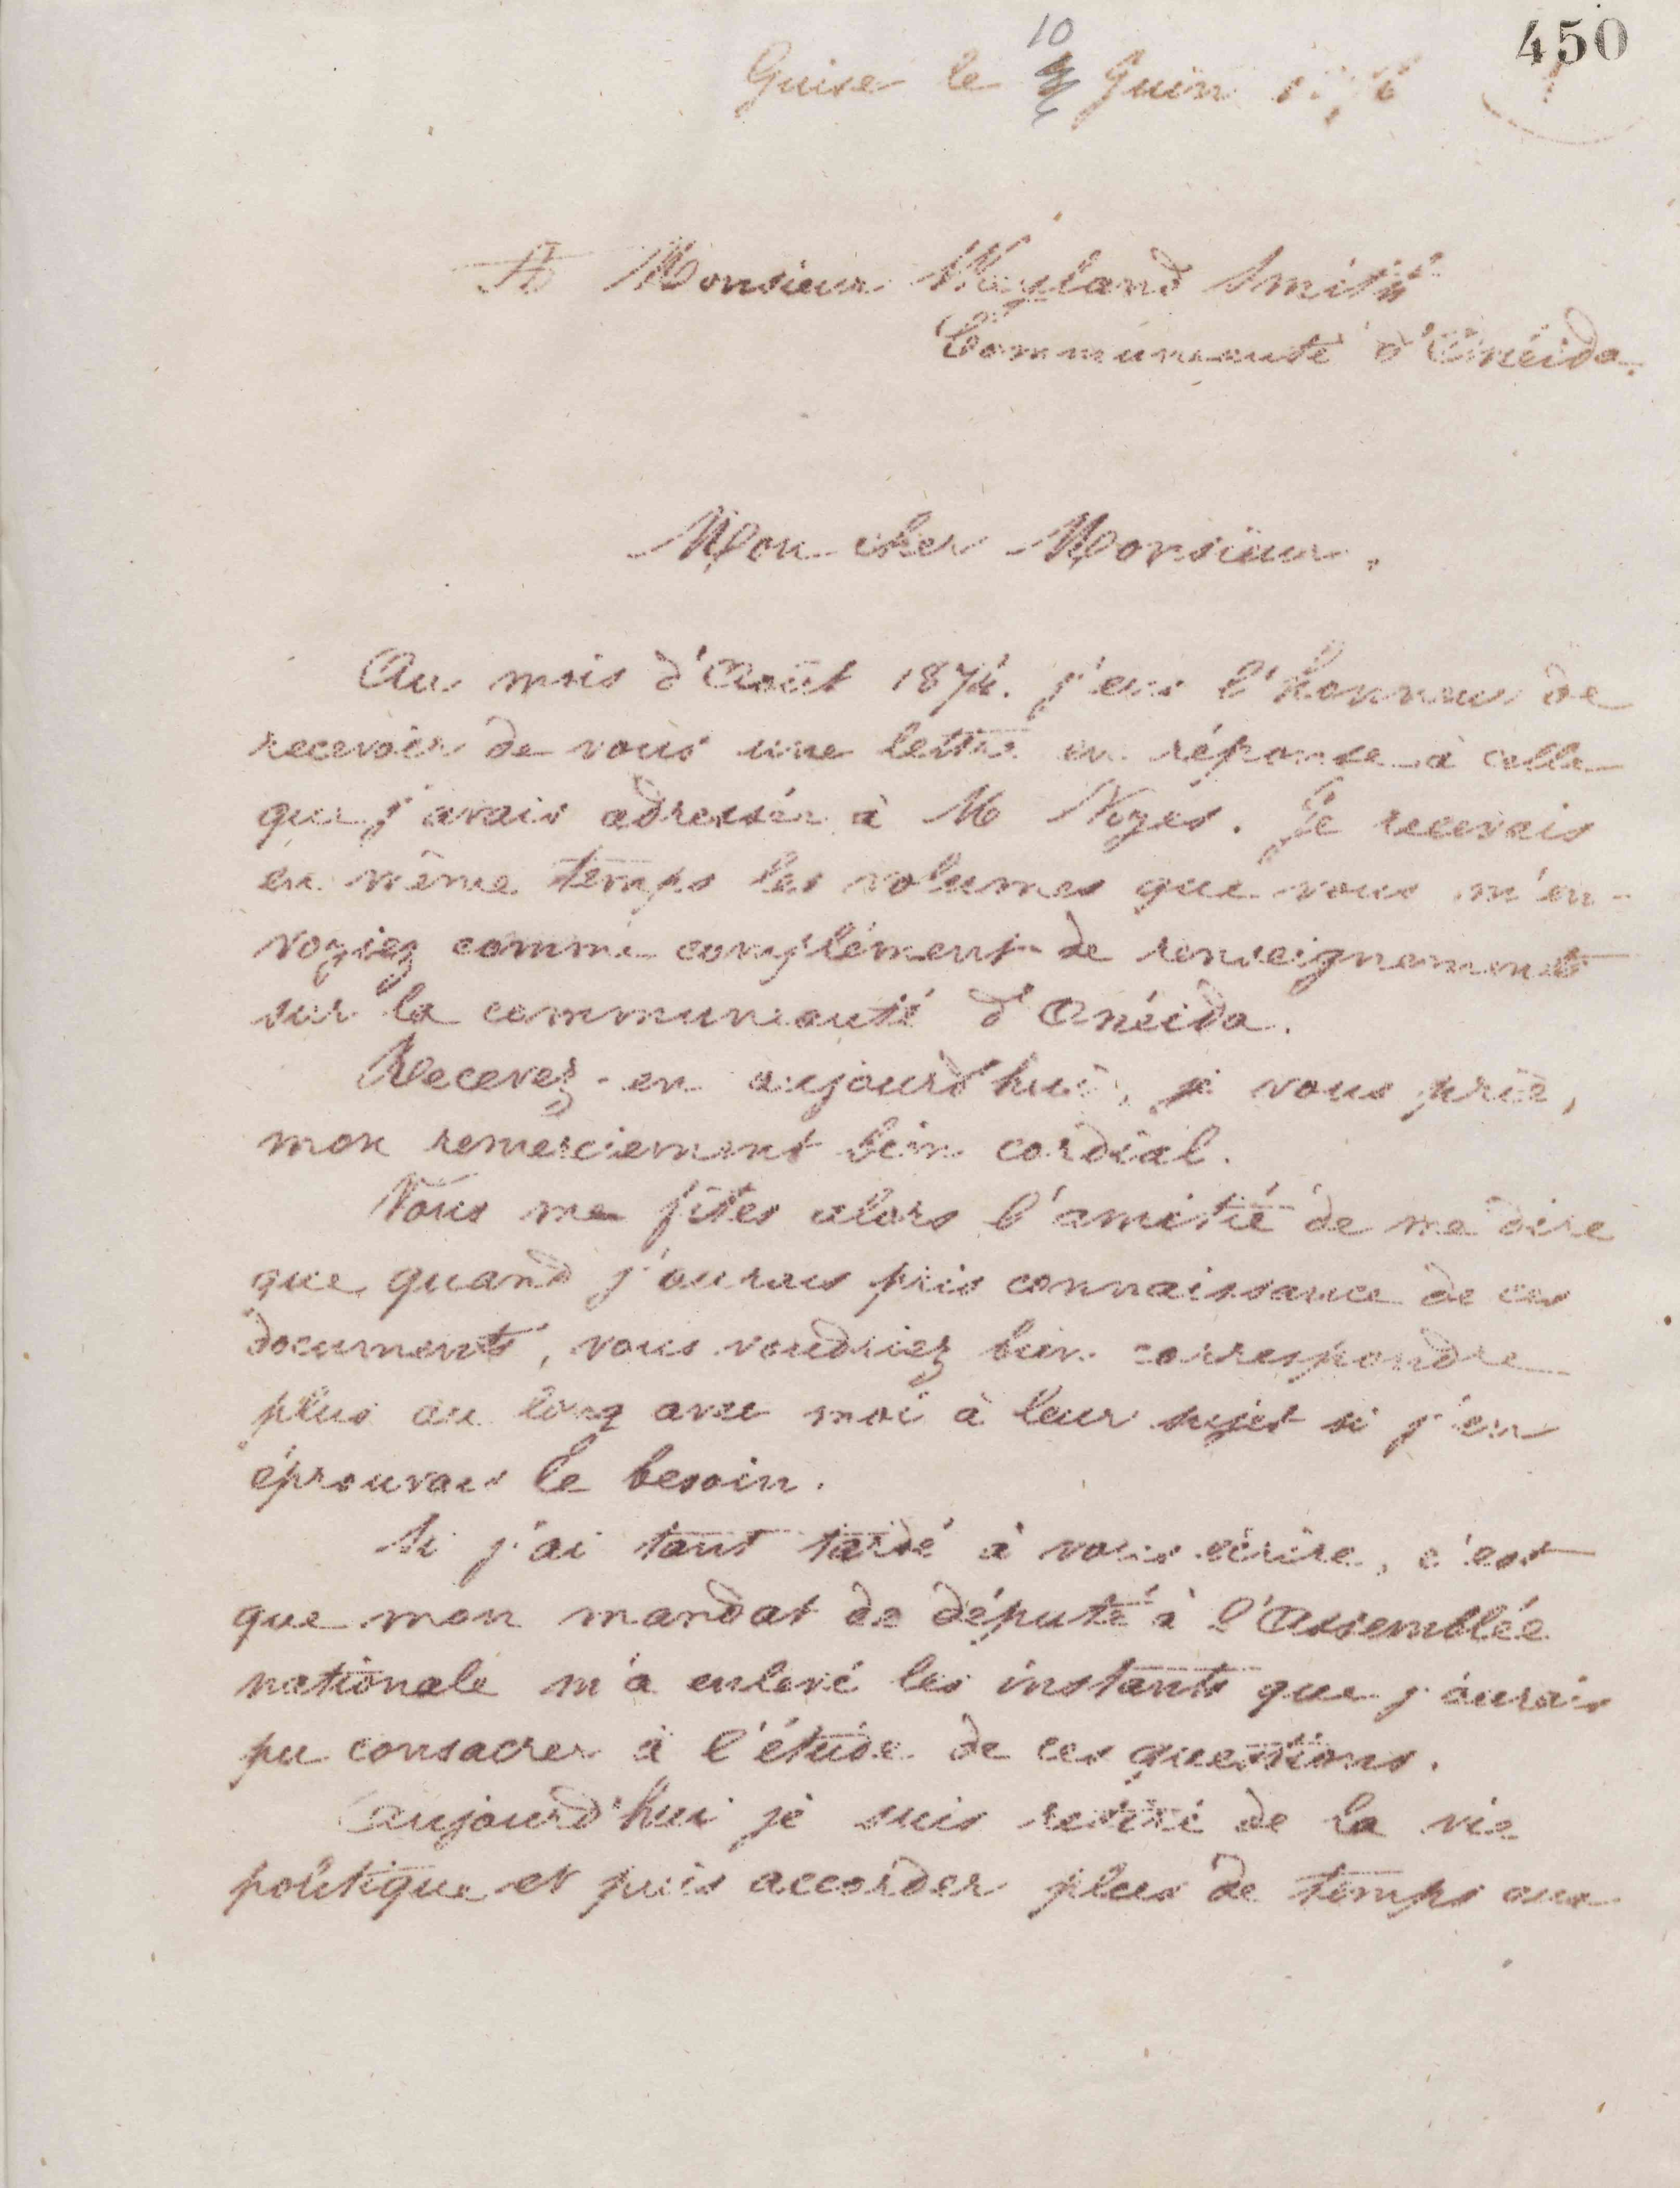 450
10
Guise le Juin 1876
A Monsieur Wayland Smith
Communauté d'Onéida.
Mon cher Monsieur,
Au mois d'Août 1874. j'eus l'honneur de
recevoir de vous une lettre en réponse à celle
que j'avais adressée à M Noyés. Je recevais
en même temps les volumes que vous m'en-
voyiez comme complément de renseignements
sur la communauté d'Onéida.
Recevez-en aujourd'hui, je vous prie,
mon remerciement bien cordial.
Vous me fîtes alors l'amitié de me dire
que quand j'aurais pris connaissance de ces
documents, vous voudriez bien correspondre
plus au long avec moi à leur sujet si j'en
éprouvais le besoin.
Si j'ai tant tardé à vous écrire, c'est
que mon mandat de député à l'Assemblée
nationale m'a enlevé les instants que j'aurais
pu consacrer à l'étude de ces questions.
Aujourd'hui je suis retiré de la vie
politique et puis accorder plus de temps aux